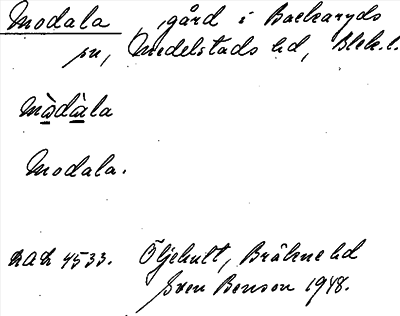 Modala, gård i Backaryds
sn, Medelstads hd, Blek.l.
mòdàla
Modala.
RAÄ 4533. Öljehult, Bräkne hd
Sven Benson 1948.